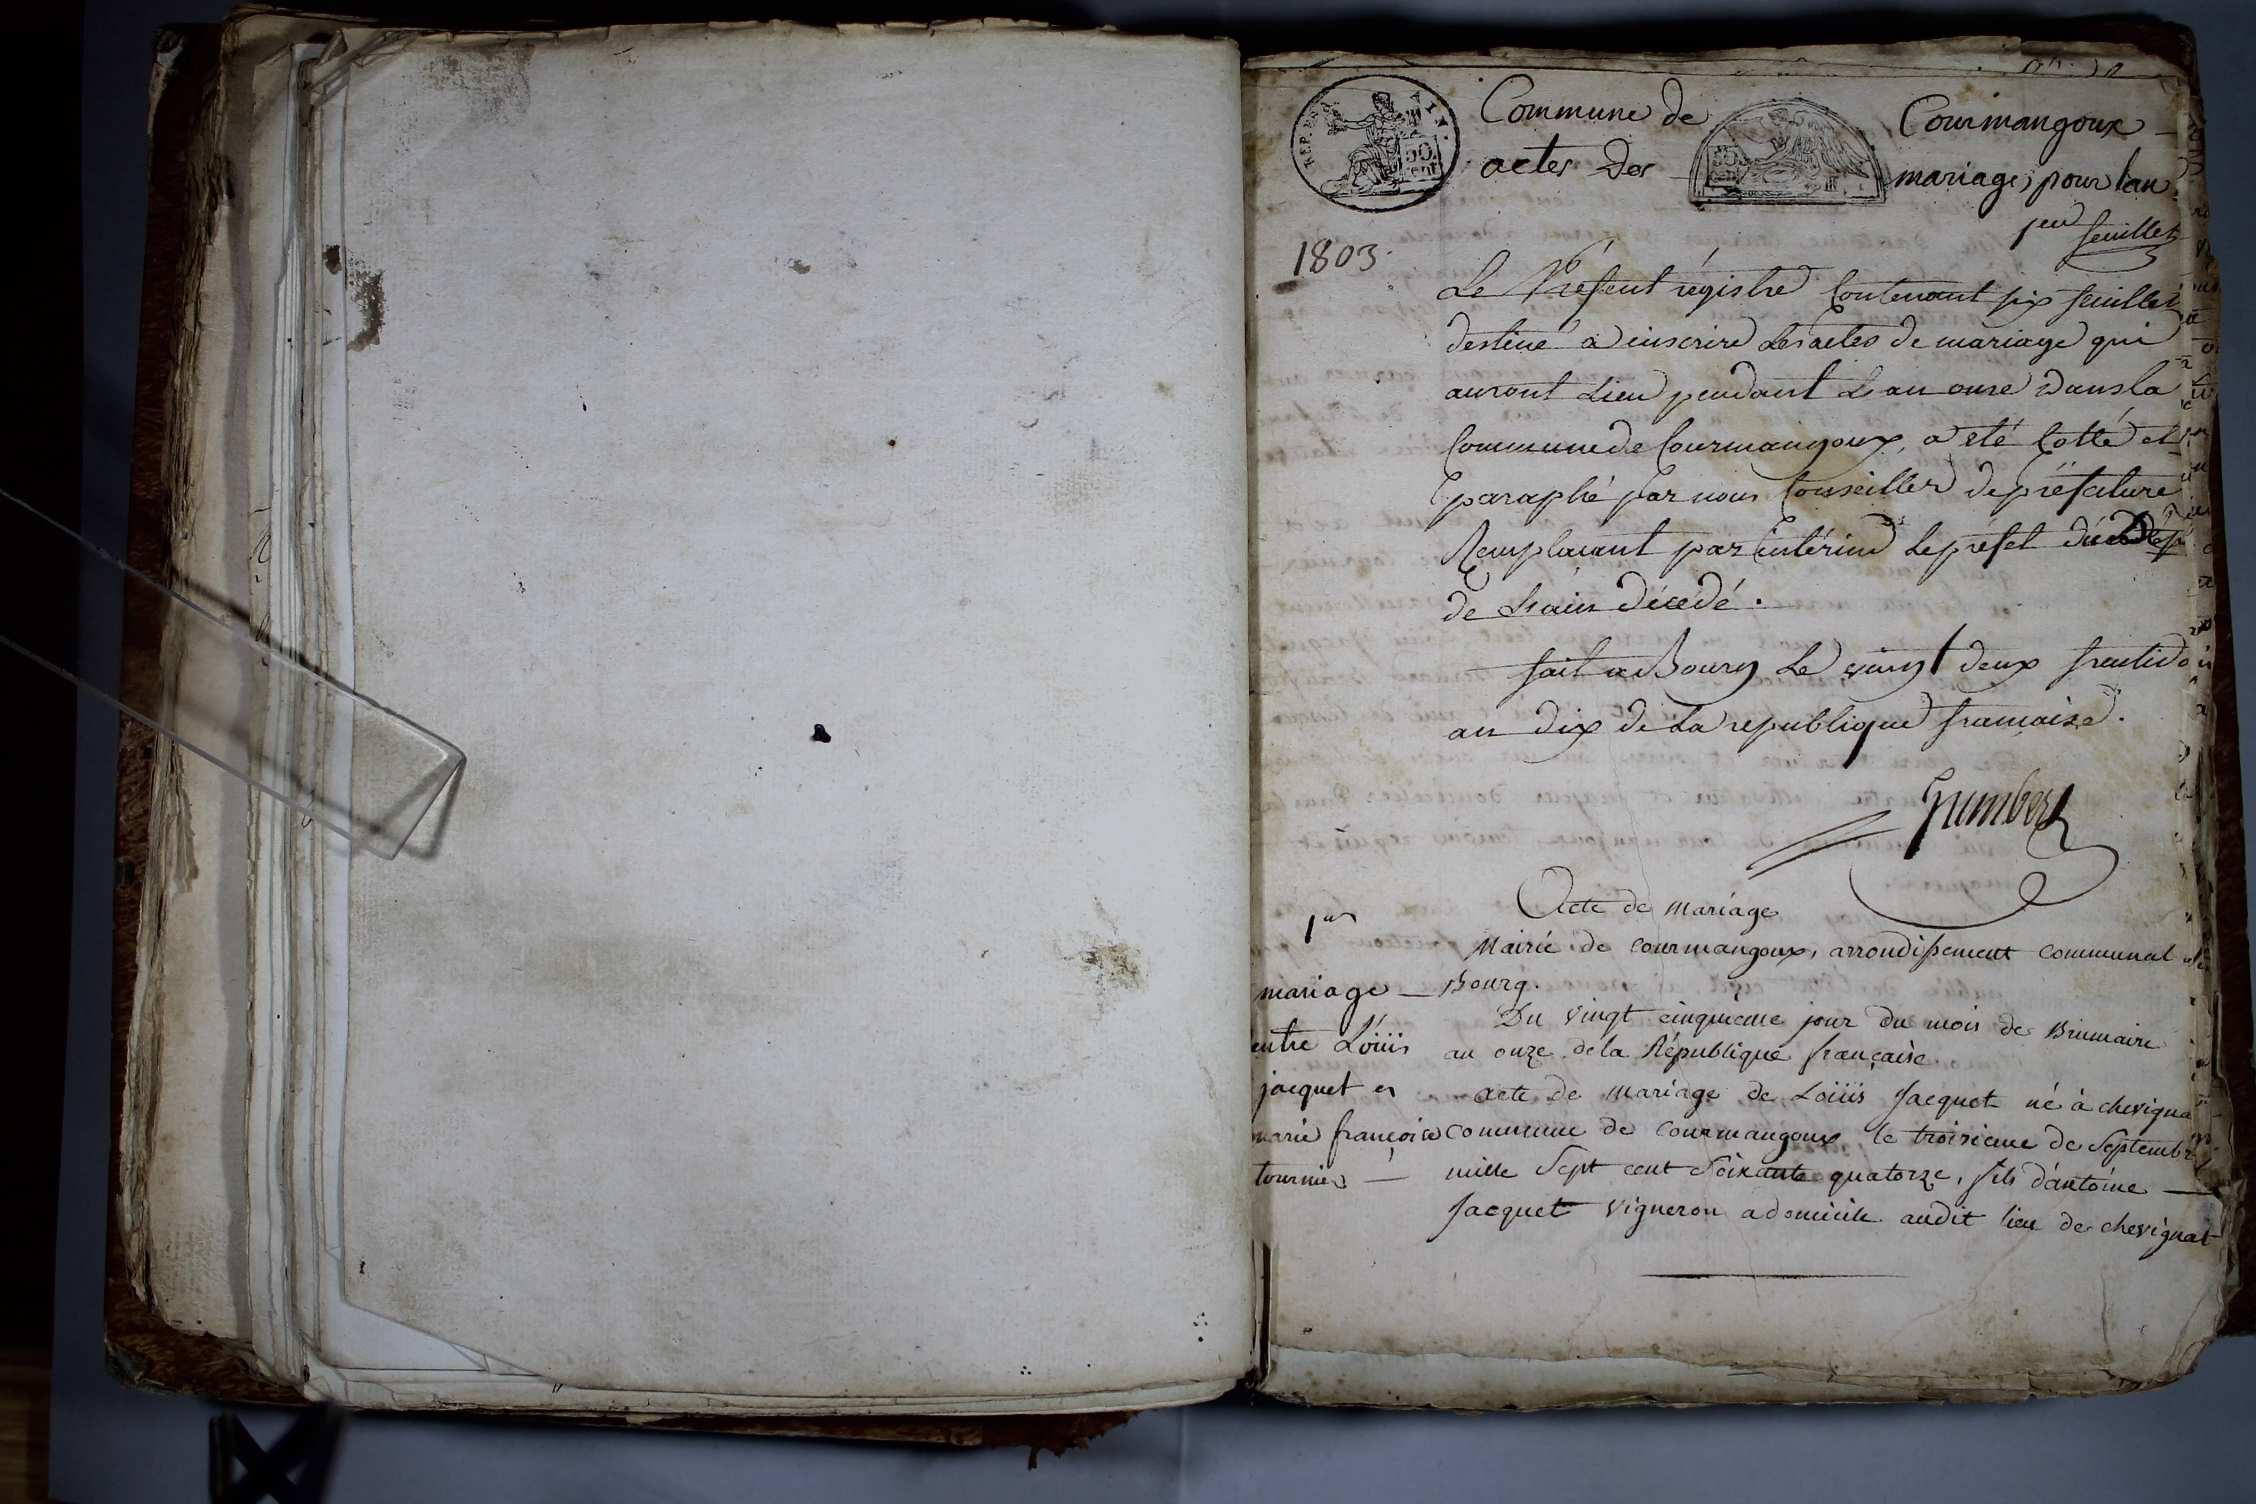 Commune de Courmangoux
actes des mariages pour lan
1er feuillet
1803
Le Présent régistre Contenant six feuillets
destiné a inscrire Les actes de mariage qui
auront Lieu pendant L'an onze dans la
Commune de Courmangoux, a été Cotté et
paraphé par nous Conseiller de préfecture
Remplacant par intérim Le préfet
de L'ain décédé.
fait a Bourg Le vingt deux fructidor
an dix de La republique francaise.
Humbert
Acte de mariage
1er
mariage
entre Loüis
jacquet et
marie françoise
tournier
Mairie de courmangoux, arrondissement communal de
Bourg.
Du vingt cinquieme jour du mois de Brumaire
an onze de la République française.
acte de mariage de Loüis Jacquet né à chevignat
commune de courmangoux le troisieme de Septembre
mille Sept cent Soixante quatorze, fils d'antoine
Jacquet vigneron a domicile audit lieu de chevignat